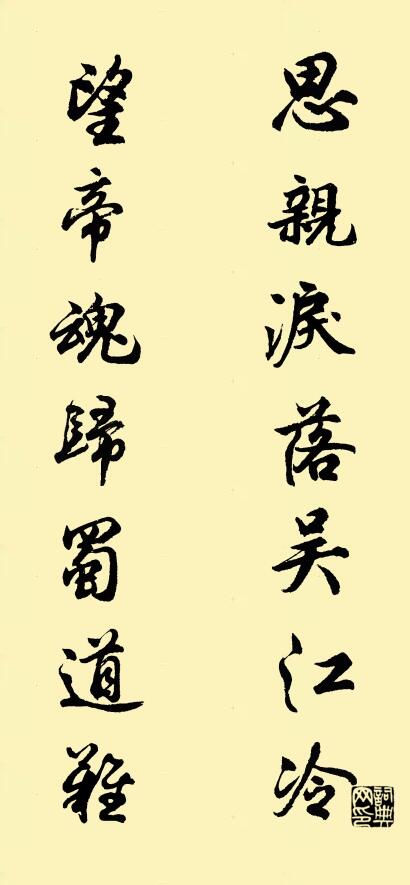 思親淚落吳江冷
望帝魂歸蜀道難
詞典網印